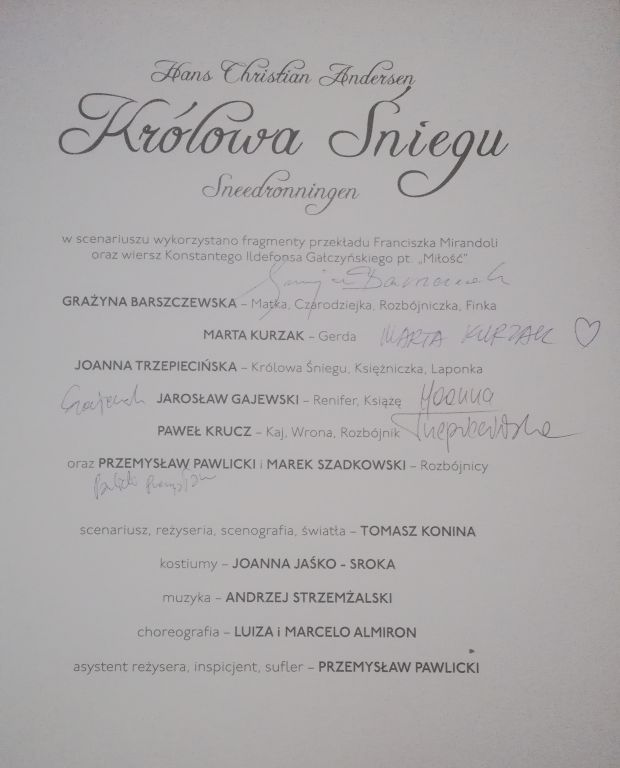 Hans Christian Andersen
Królowa Śniegu
Sneedronningen
w scenariuszu wykorzystano fragmenty przekładu Franciszka Mirandoli
oraz wiersz Konstantego Ildefonsa Gałczyńskiego pt. „Miłość"
GRAŻYNA BARSZCZEWSKA – Matka, Czarodziejka, Rozbójniczka, Finka
MARTA KURZAK – Gerda MARTA KURZAK
JOANNA TRZEPIECIŃSKA – Królowa Śniegu, Księżniczka, Laponka
Gajewski JAROSŁAW GAJEWSKI – Renifer, Książę Joanna
PAWEŁ KRUCZ – Kaj, Wrona, Rozbójnik Trzepiecińska
oraz PRZEMYSŁAW PAWLICKI i MAREK SZADKOWSKI – Rozbójnicy
scenariusz, reżyseria, scenografia, światła – TOMASZ KONINA
kostiumy – JOANNA JAŚKO - SROKA
muzyka – ANDRZEJ STRZEMŻALSKI
choreografia – LUIZA i MARCELO ALMIRON
asystent reżysera, inspicjent, sufler – PRZEMYSŁAW PAWLICKI